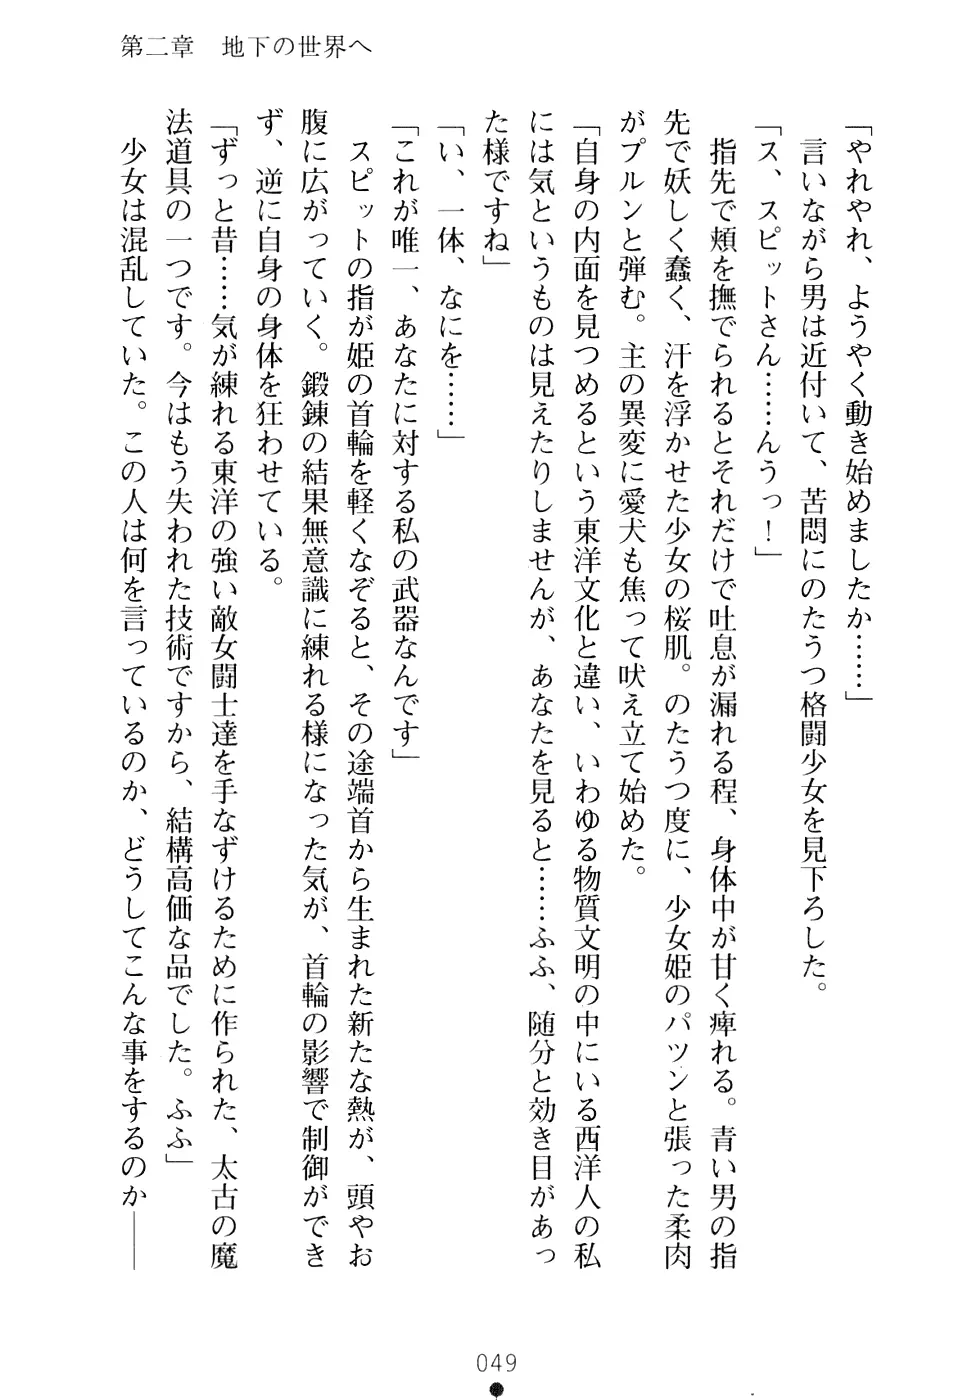 第二章　地下の世界へ
「やれやれ、ようやく動き始めましたか……」
　言いながら男は近付いて、苦悶にのたうつ格闘少女を見下ろした。
「ス、スピットさん……んうっ！」
　指先で頬を撫でられるとそれだけで吐息が漏れる程、身体中が甘く痺れる。青い男の指
先で妖しく蠢く、汗を浮かせた少女の桜肌。のたうつ度に、少女姫のパツンと張った柔肉
がプルンと弾む。主の異変に愛犬も焦って吠え立て始めた。
「自身の内面を見つめるという東洋文化と違い、いわゆる物質文明の中にいる西洋人の私
には気というものは見えたりしませんが、あなたを見ると……ふふ、随分と効き目があっ
た様ですね」
「い、一体、なにを……」
「これが唯一、あなたに対する私の武器なんです」
　スピットの指が姫の首輪を軽くなぞると、その途端首から生まれた新たな熱が、頭やお
腹に広がっていく。鍛錬の結果無意識に練れる様になった気が、首輪の影響で制御ができ
ず、逆に自身の身体を狂わせている。
「ずっと昔……気が練れる東洋の強い敵女闘士達を手なずけるために作られた、太古の魔
法道具の一つです。今はもう失われた技術ですから、結構高価な品でした。ふふ」
　少女は混乱していた。この人は何を言っているのか、どうしてこんな事をするのか――
049